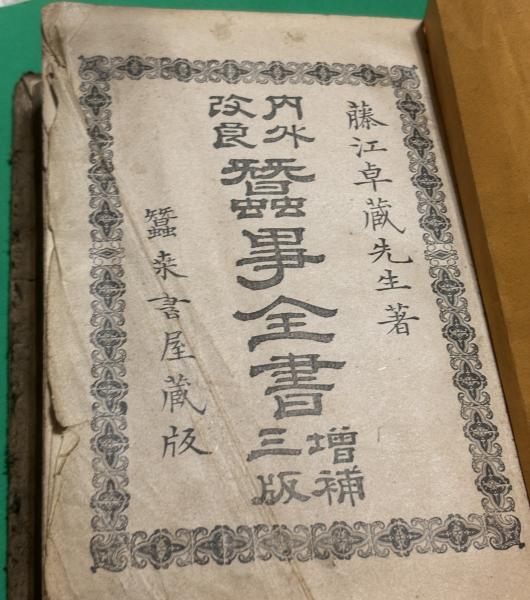 藤江卓蔵先生著
内外
改良
蠶事全書
増補
三版
蠶桒書屋蔵版